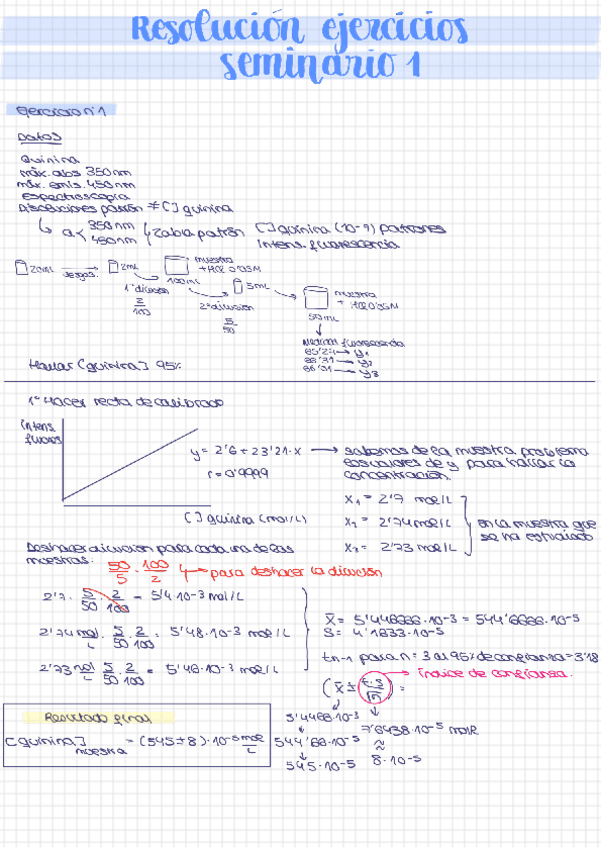 Resolución ejercicios
seminario 1
Ejercicio nº1
Datos
Quinina
máx. abs 350nm
máx. emis. 450nm
espectroscopia
Disoluciones patrón ≠ [ ] quinina
350nm
450nm
tabla patrón
[ ] quinina (10-9) patrones
intens. fluorescencia
20mL
2mL
100mL
muestra
1ª dilución
2/100
5mL
2ª dilución
5/50
muestra
50mL
Medida fluorescencia
→ y1
→ y2
→ y3
Hallar [quinina] 95%
1º Hacer recta de calibrado
intens.
fluores
y = 2'6 + 23'21·x
r = 0'9999
[ ] quinina (mol/L)
→ sabemos de la muestra problema
los valores de y para hallar la
concentración.
X1 = 2'7 mol/L
X2 = 2'74 mol/L
X3 = 2'73 mol/L
en la muestra que
se ha estudiado
Deshacer dilución para cada una de las
muestras.
50/5 · 100/2 → para deshacer la dilución
2'7 · 5/50 · 2/100 = 5'4·10-3 mol/L
2'74 mol/L · 5/50 · 2/100 = 5'48·10-3 mol/L
2'73 mol/L · 5/50 · 2/100 = 5'46·10-3 mol/L
X̄ = 5'446666·10-3 = 544'6666·10-5
S = 4'1633·10-5
tn-1 para n = 3 al 95% de confianza = 3'18
índice de confianza.
(X̄ ± t·s/√n) =
5'4466·10-3
544'66·10-5
545·10-5
7'6438·10-5 mol/L
≈
8·10-5
Resultado final
[quinina] muestra = (545±8)·10-5 mol/L